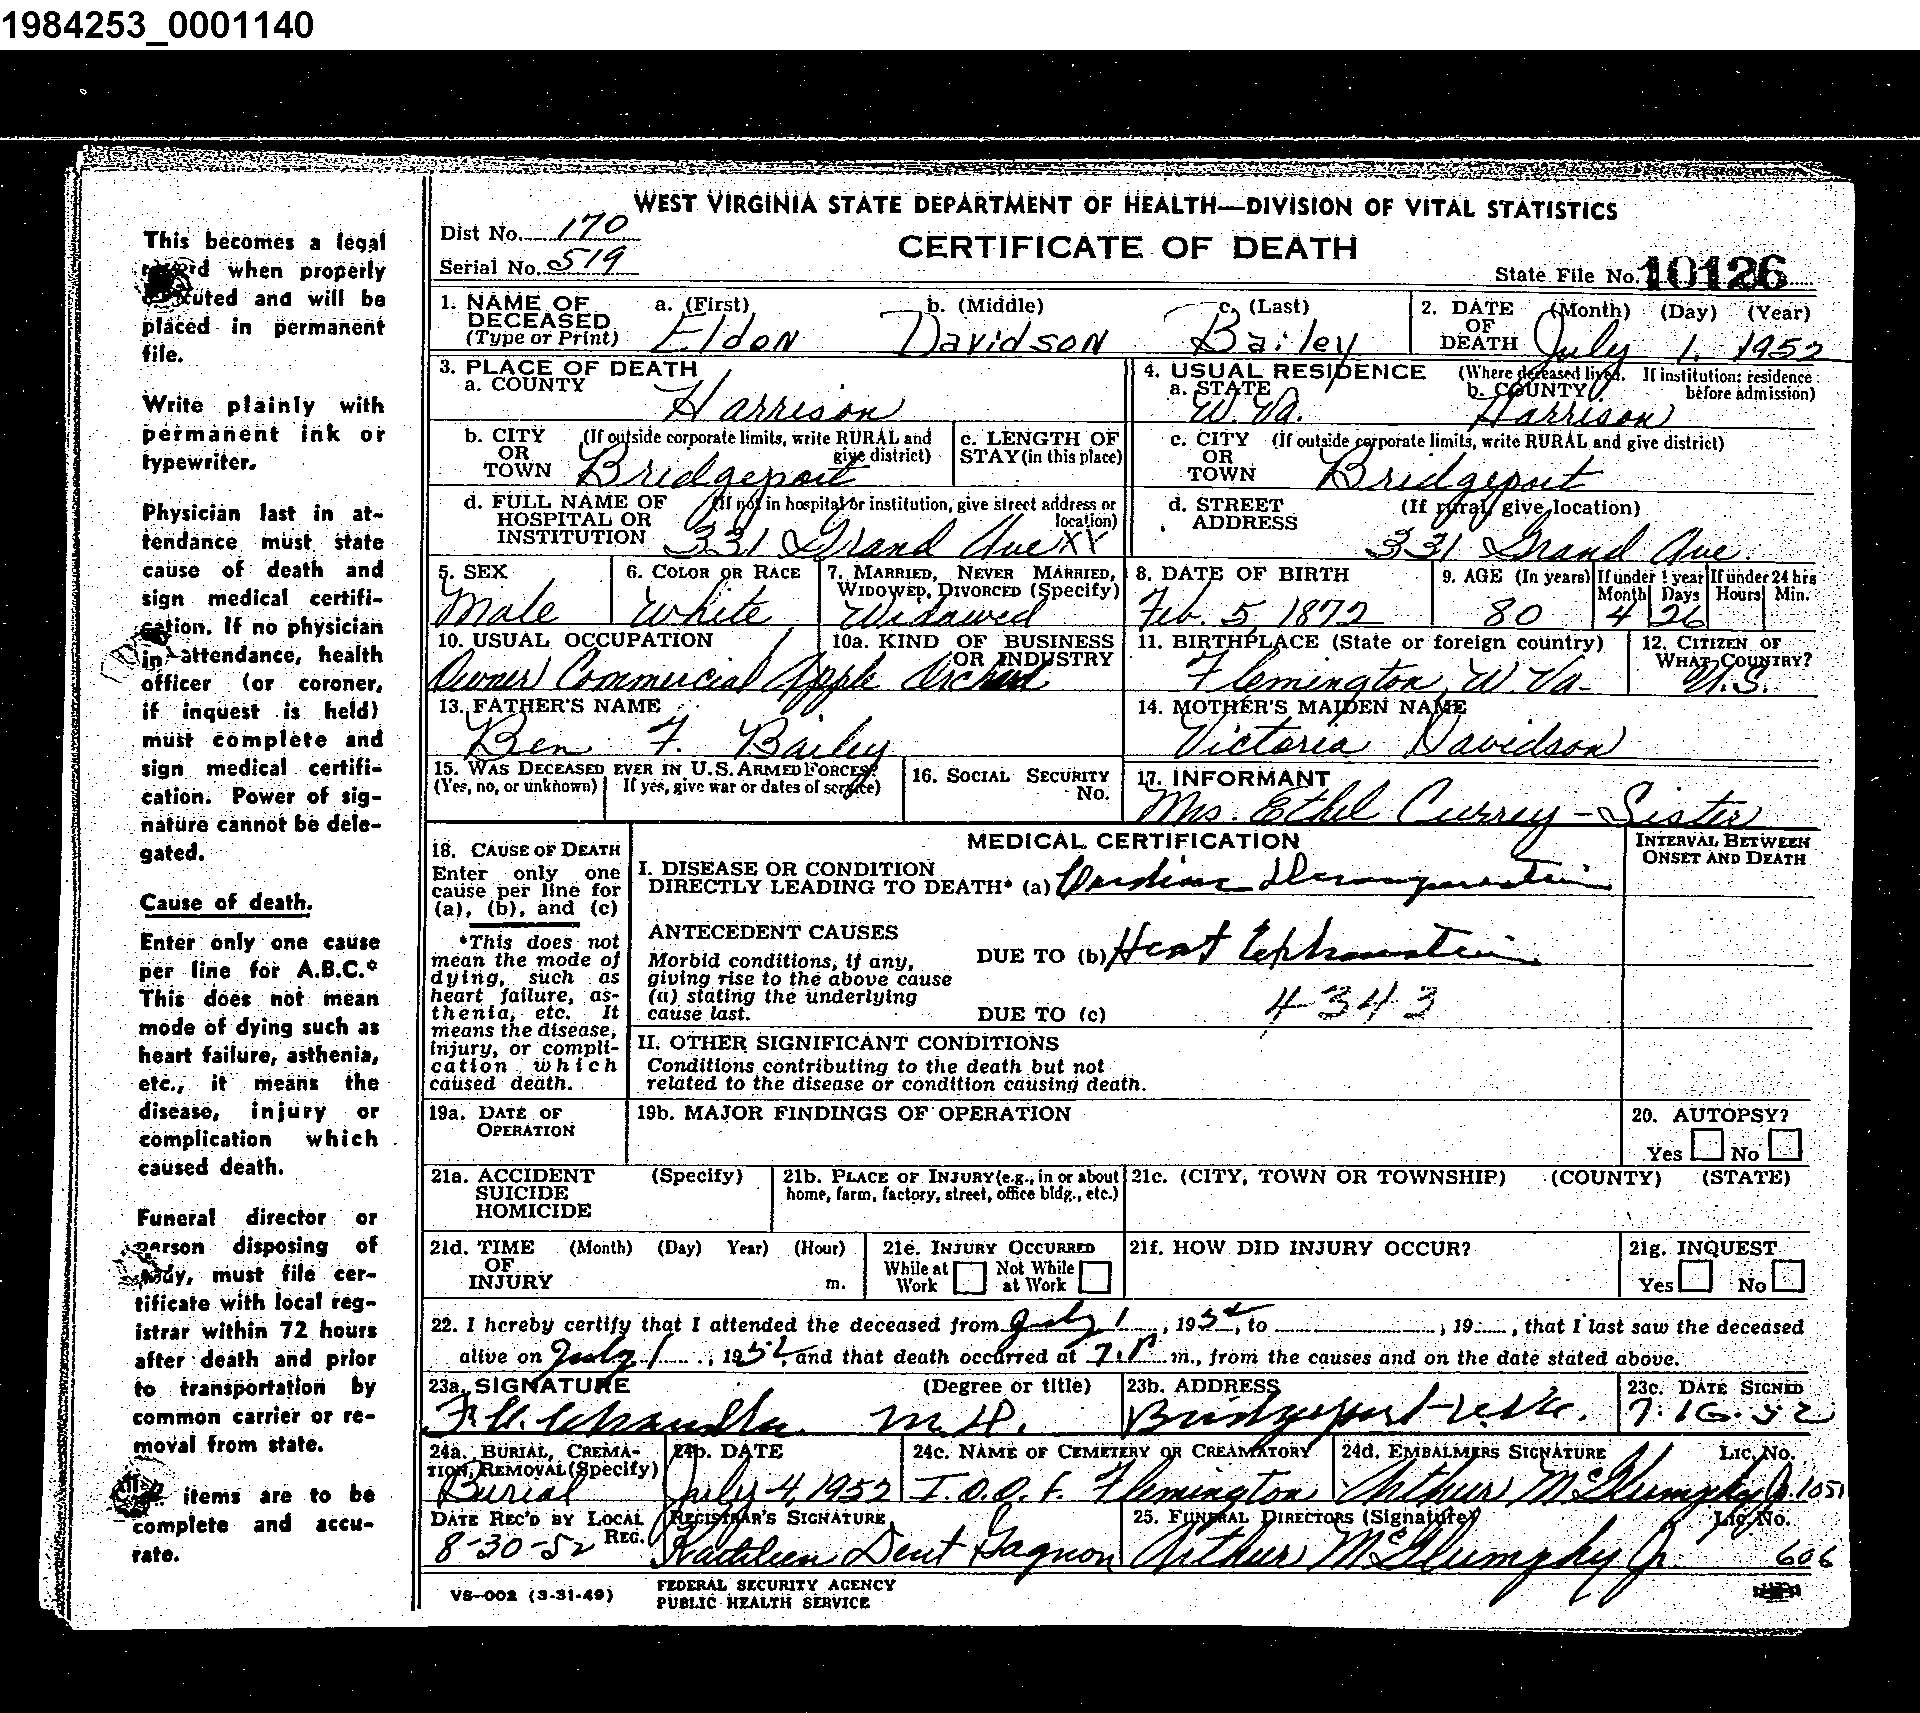 1984253_0001140
WEST VIRGINIA STATE DEPARTMENT OF HEALTH—DIVISION OF VITAL STATISTICS
Dist No. 170
CERTIFICATE OF DEATH
Serial No. 519
State File No. 10126
This becomes a legal
record when properly
executed and will be
placed in permanent
file.
Write plainly with
permanent ink or
typewriter.
Physician last in at-
tendance must state
cause of death and
sign medical certifi-
cation. If no physician
in attendance, health
officer (or coroner,
if inquest is held)
must complete and
sign medical certifi-
cation. Power of sig-
nature cannot be dele-
gated.
Cause of death.
Enter only one cause
per line for A.B.C.*
This does not mean
mode of dying such as
heart failure, asthenia,
etc., it means the
disease, injury or
complication which
caused death.
Funeral director or
person disposing of
body, must file cer-
tificate with local reg-
istrar within 72 hours
after death and prior
to transportation by
common carrier or re-
moval from state.
items are to be
complete and accu-
rate.
1. NAME OF DECEASED (Type or Print) a. (First) b. (Middle) c. (Last)
Eldon Davidson Bailey
2. DATE OF DEATH (Month) (Day) (Year)
July 1, 1952
3. PLACE OF DEATH
a. COUNTY
Harrison
4. USUAL RESIDENCE (Where deceased lived. If institution: residence before admission)
a. STATE b. COUNTY
W. Va. Harrison
b. CITY OR TOWN (If outside corporate limits, write RURAL and give district)
Bridgeport
c. LENGTH OF STAY (in this place)
c. CITY OR TOWN (If outside corporate limits, write RURAL and give district)
Bridgeport
d. FULL NAME OF HOSPITAL OR INSTITUTION (If not in hospital or institution, give street address or location)
331 Grand Ave XX
d. STREET ADDRESS (If rural, give location)
331 Grand Ave.
5. SEX
Male
6. COLOR OR RACE
White
7. MARRIED, NEVER MARRIED, WIDOWED, DIVORCED (Specify)
Widowed
8. DATE OF BIRTH
Feb. 5, 1872
9. AGE (In years) If under 1 year Month Days If under 24 hrs Hours Min.
80 4 26
10. USUAL OCCUPATION 10a. KIND OF BUSINESS OR INDUSTRY
Owner Commercial Apple Orchard
11. BIRTHPLACE (State or foreign country)
Flemington, W Va.
12. CITIZEN OF WHAT COUNTRY?
U.S.
13. FATHER'S NAME
Ben F. Bailey
14. MOTHER'S MAIDEN NAME
Victoria Davidson
15. WAS DECEASED EVER IN U.S. ARMED FORCES?
(Yes, no, or unknown) If yes, give war or dates of service)
16. SOCIAL SECURITY No.
17. INFORMANT
Mrs. Ethel Currey - Sister
18. CAUSE OF DEATH
Enter only one
cause per line for
(a), (b), and (c)
*This does not
mean the mode of
dying, such as
heart failure, as-
thenia, etc. It
means the disease,
injury, or compli-
cation which
caused death.
MEDICAL CERTIFICATION
INTERVAL BETWEEN ONSET AND DEATH
I. DISEASE OR CONDITION
DIRECTLY LEADING TO DEATH* (a) Cardiac Decompensation
ANTECEDENT CAUSES
Morbid conditions, if any,
giving rise to the above cause
(a) stating the underlying
cause last.
DUE TO (b) Heat Exhaustion
DUE TO (c) 4343
II. OTHER SIGNIFICANT CONDITIONS
Conditions contributing to the death but not
related to the disease or condition causing death.
19a. DATE OF OPERATION
19b. MAJOR FINDINGS OF OPERATION
20. AUTOPSY?
Yes No
21a. ACCIDENT SUICIDE HOMICIDE (Specify)
21b. PLACE OF INJURY (e.g., in or about home, farm, factory, street, office bldg., etc.)
21c. (CITY, TOWN OR TOWNSHIP) (COUNTY) (STATE)
21d. TIME OF INJURY (Month) (Day) Year) (Hour) m.
21e. INJURY OCCURRED
While at Work Not While at Work
21f. HOW DID INJURY OCCUR?
21g. INQUEST
Yes No
22. I hereby certify that I attended the deceased from July 1, 1952, to , 19 , that I last saw the deceased
alive on July 1, 1952, and that death occurred at 7. P m., from the causes and on the date stated above.
23a. SIGNATURE (Degree or title)
M.D.
23b. ADDRESS
Bridgeport
23c. DATE SIGNED
7-16-52
24a. BURIAL, CREMATION, REMOVAL (Specify)
Burial
24b. DATE
July 4, 1952
24c. NAME OF CEMETERY OR CREAMATORY
I.O.O.F. Flemington
24d. EMBALMERS SIGNATURE Lic. No.
Arthur McGlumphy Jr. 1051
DATE REC'D BY LOCAL REG.
8-30-52
REGISTRAR'S SIGNATURE
Kathleen Dent Gagnon
25. FUNERAL DIRECTORS (Signature) Lic. No.
Arthur McGlumphy Jr. 606
VS-002 (3-31-49)
FEDERAL SECURITY AGENCY
PUBLIC HEALTH SERVICE